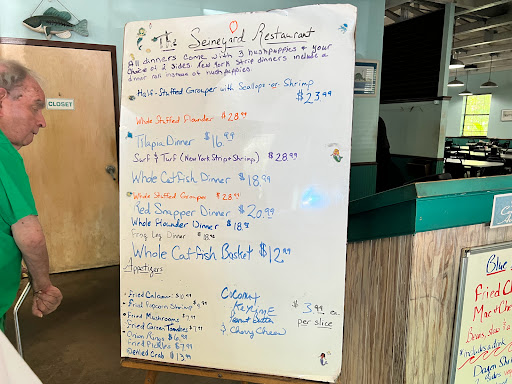 The Seineyard Restaurant
All dinners come with 3 hushpuppies & your
choice of 2 sides. New York Strip dinners include a
dinner roll instead of hushpuppies.
Half-Stuffed Grouper with Scallops or Shrimp
$23.99
Whole Stuffed Flounder $28.99
Tilapia Dinner $16.99
Surf & Turf (New York Strip & Shrimp) $28.99
Whole Catfish Dinner $18.99
Whole Stuffed Grouper $28.99
Red Snapper Dinner $20.99
Whole Flounder Dinner $18.99
Frog Leg Dinner $18.99
Whole Catfish Basket $12.99
Appetizers
Fried Calamari $10.99
Fried Popcorn Shrimp $9.99
Fried Mushrooms $7.99
Fried Green Tomatoes $7.99
Onion Rings $6.99
Fried Pickles $7.99
Deviled Crab $13.99
Coconut
Key Lime
Peanut Butter
& Cherry Cheese
$3.99 ea.
per slice
CLOSET
Blue
Fried Ch
Mac n' Chee
Includes a drink